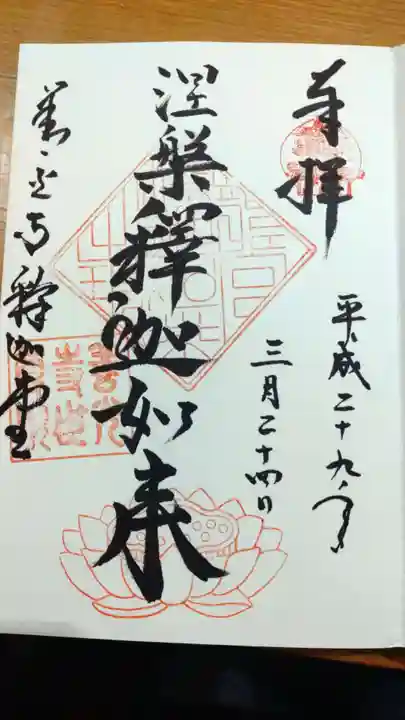 奉拝
平成二十九年
三月二十四日
涅槃釋迦如来
善光寺釋迦堂